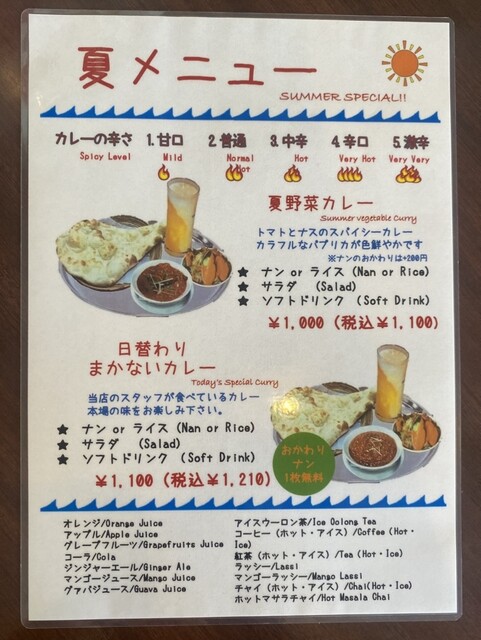 夏メニュー
SUMMER SPECIAL!!
カレーの辛さ 1.甘口 2.普通 3.中辛 4.辛口 5.激辛
Spicy Level Mild Normal Hot Hot Very Hot Very Very Hot
夏野菜カレー
Summer vegetable Curry
トマトとナスのスパイシーカレー
カラフルなパプリカが色鮮やかです
※ナンのおかわりは+200円
★ ナン or ライス (Nan or Rice)
★ サラダ (Salad)
★ ソフトドリンク (Soft Drink)
¥1,000 (税込¥1,100)
日替わり
まかないカレー
Today's Special Curry
当店のスタッフが食べているカレー
本場の味をお楽しみ下さい。
★ ナン or ライス (Nan or Rice)
★ サラダ (Salad)
★ ソフトドリンク (Soft Drink)
¥1,100 (税込¥1,210)
おかわり
ナン
1枚無料
オレンジ/Orange Juice
アップル/Apple Juice
グレープフルーツ/Grapefruits Juice
コーラ/Cola
ジンジャーエール/Ginger Ale
マンゴージュース/Mango Juice
グァバジュース/Guava Juice
アイスウーロン茶/Ice Oolong Tea
コーヒー (ホット・アイス) /Coffee (Hot・
Ice)
紅茶 (ホット・アイス) /Tea (Hot・Ice)
ラッシー/Lassi
マンゴーラッシー/Mango Lassi
チャイ (ホット・アイス) /Chai(Hot・Ice)
ホットマサラチャイ/Hot Masala Chai